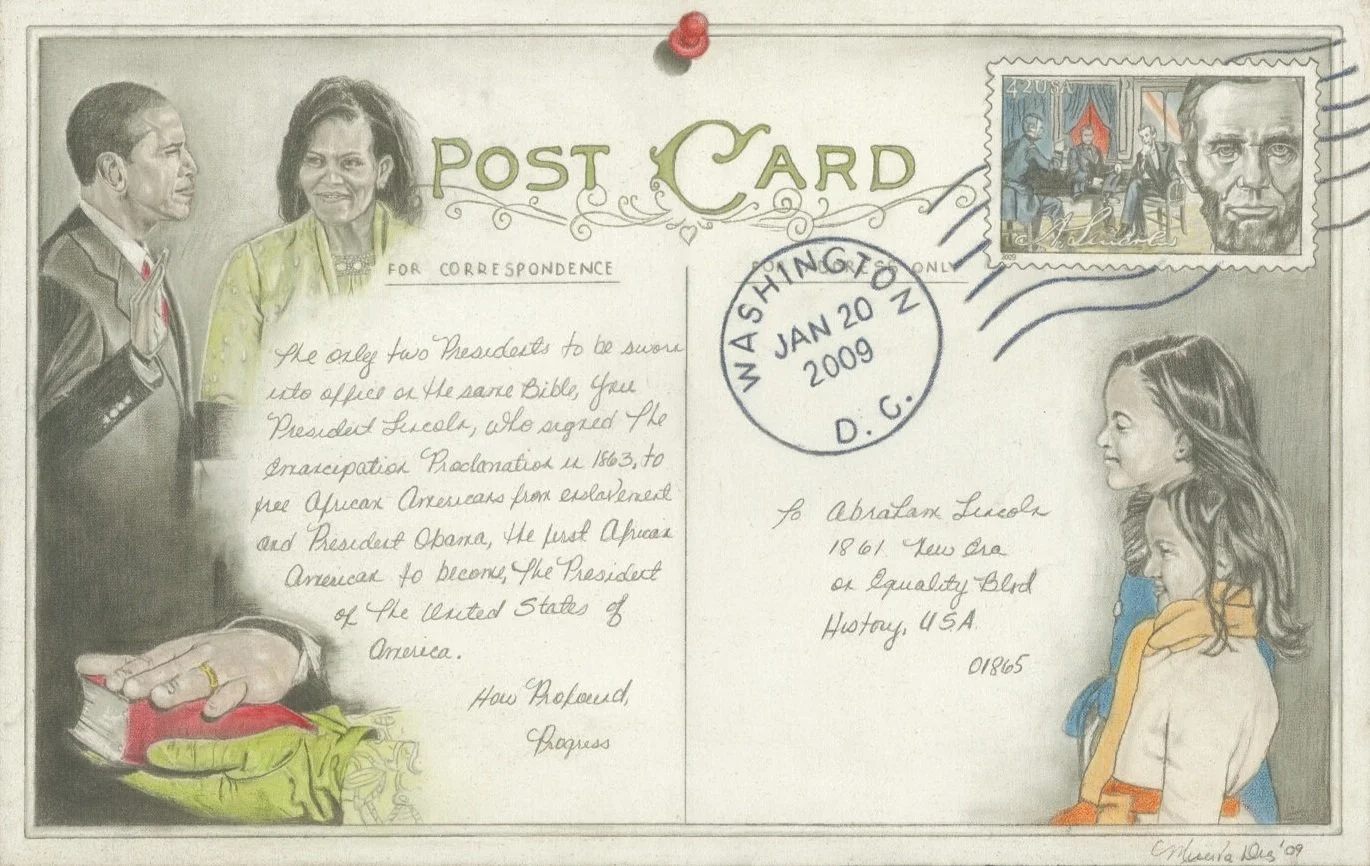 POST CARD
42USA
A. Lincoln
2009
FOR CORRESPONDENCE
FOR ADDRESS ONLY
WASHINGTON
JAN 20
2009
D. C.
The only two Presidents to be sworn
into office on the same Bible, You
President Lincoln, who signed The
Emancipation Proclamation in 1863, to
free African Americans from enslavement
and President Obama, the first African
American to become, The President
of The United States of
America.
How Profound,
Progress
To Abraham Lincoln
1861 New Era
on Equality Blvd
History, USA
01865
'09